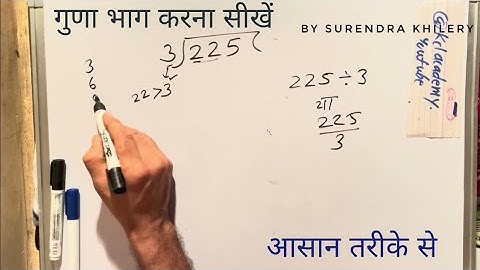 गुणा भाग करना सीखें
BY SURENDRA KHILERY
3)225(
3
6
22>3
225÷3
या
225
3
academy
youtube
आसान तरीके से